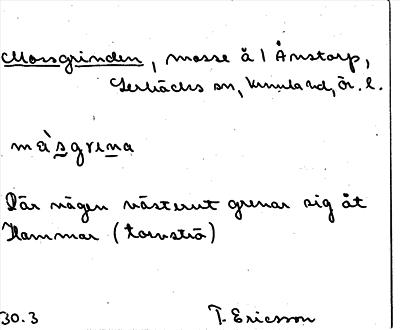 Mossgrinden, mosse å l Ånstorp,
Lerbäcks sn, Kumla hd, Ör. l.
mɑ̀sgrina
Där vägen västerut grenar sig åt
Hammar (torvströ)
30.3 T. Ericsson